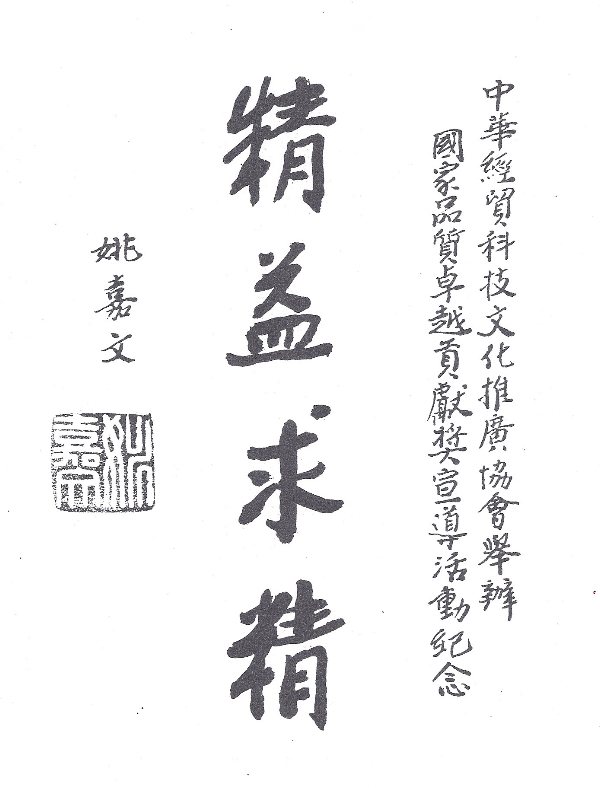 中華經貿科技文化推廣協會舉辦
國家品質卓越貢獻獎宣導活動紀念
精益求精
姚嘉文
姚嘉文